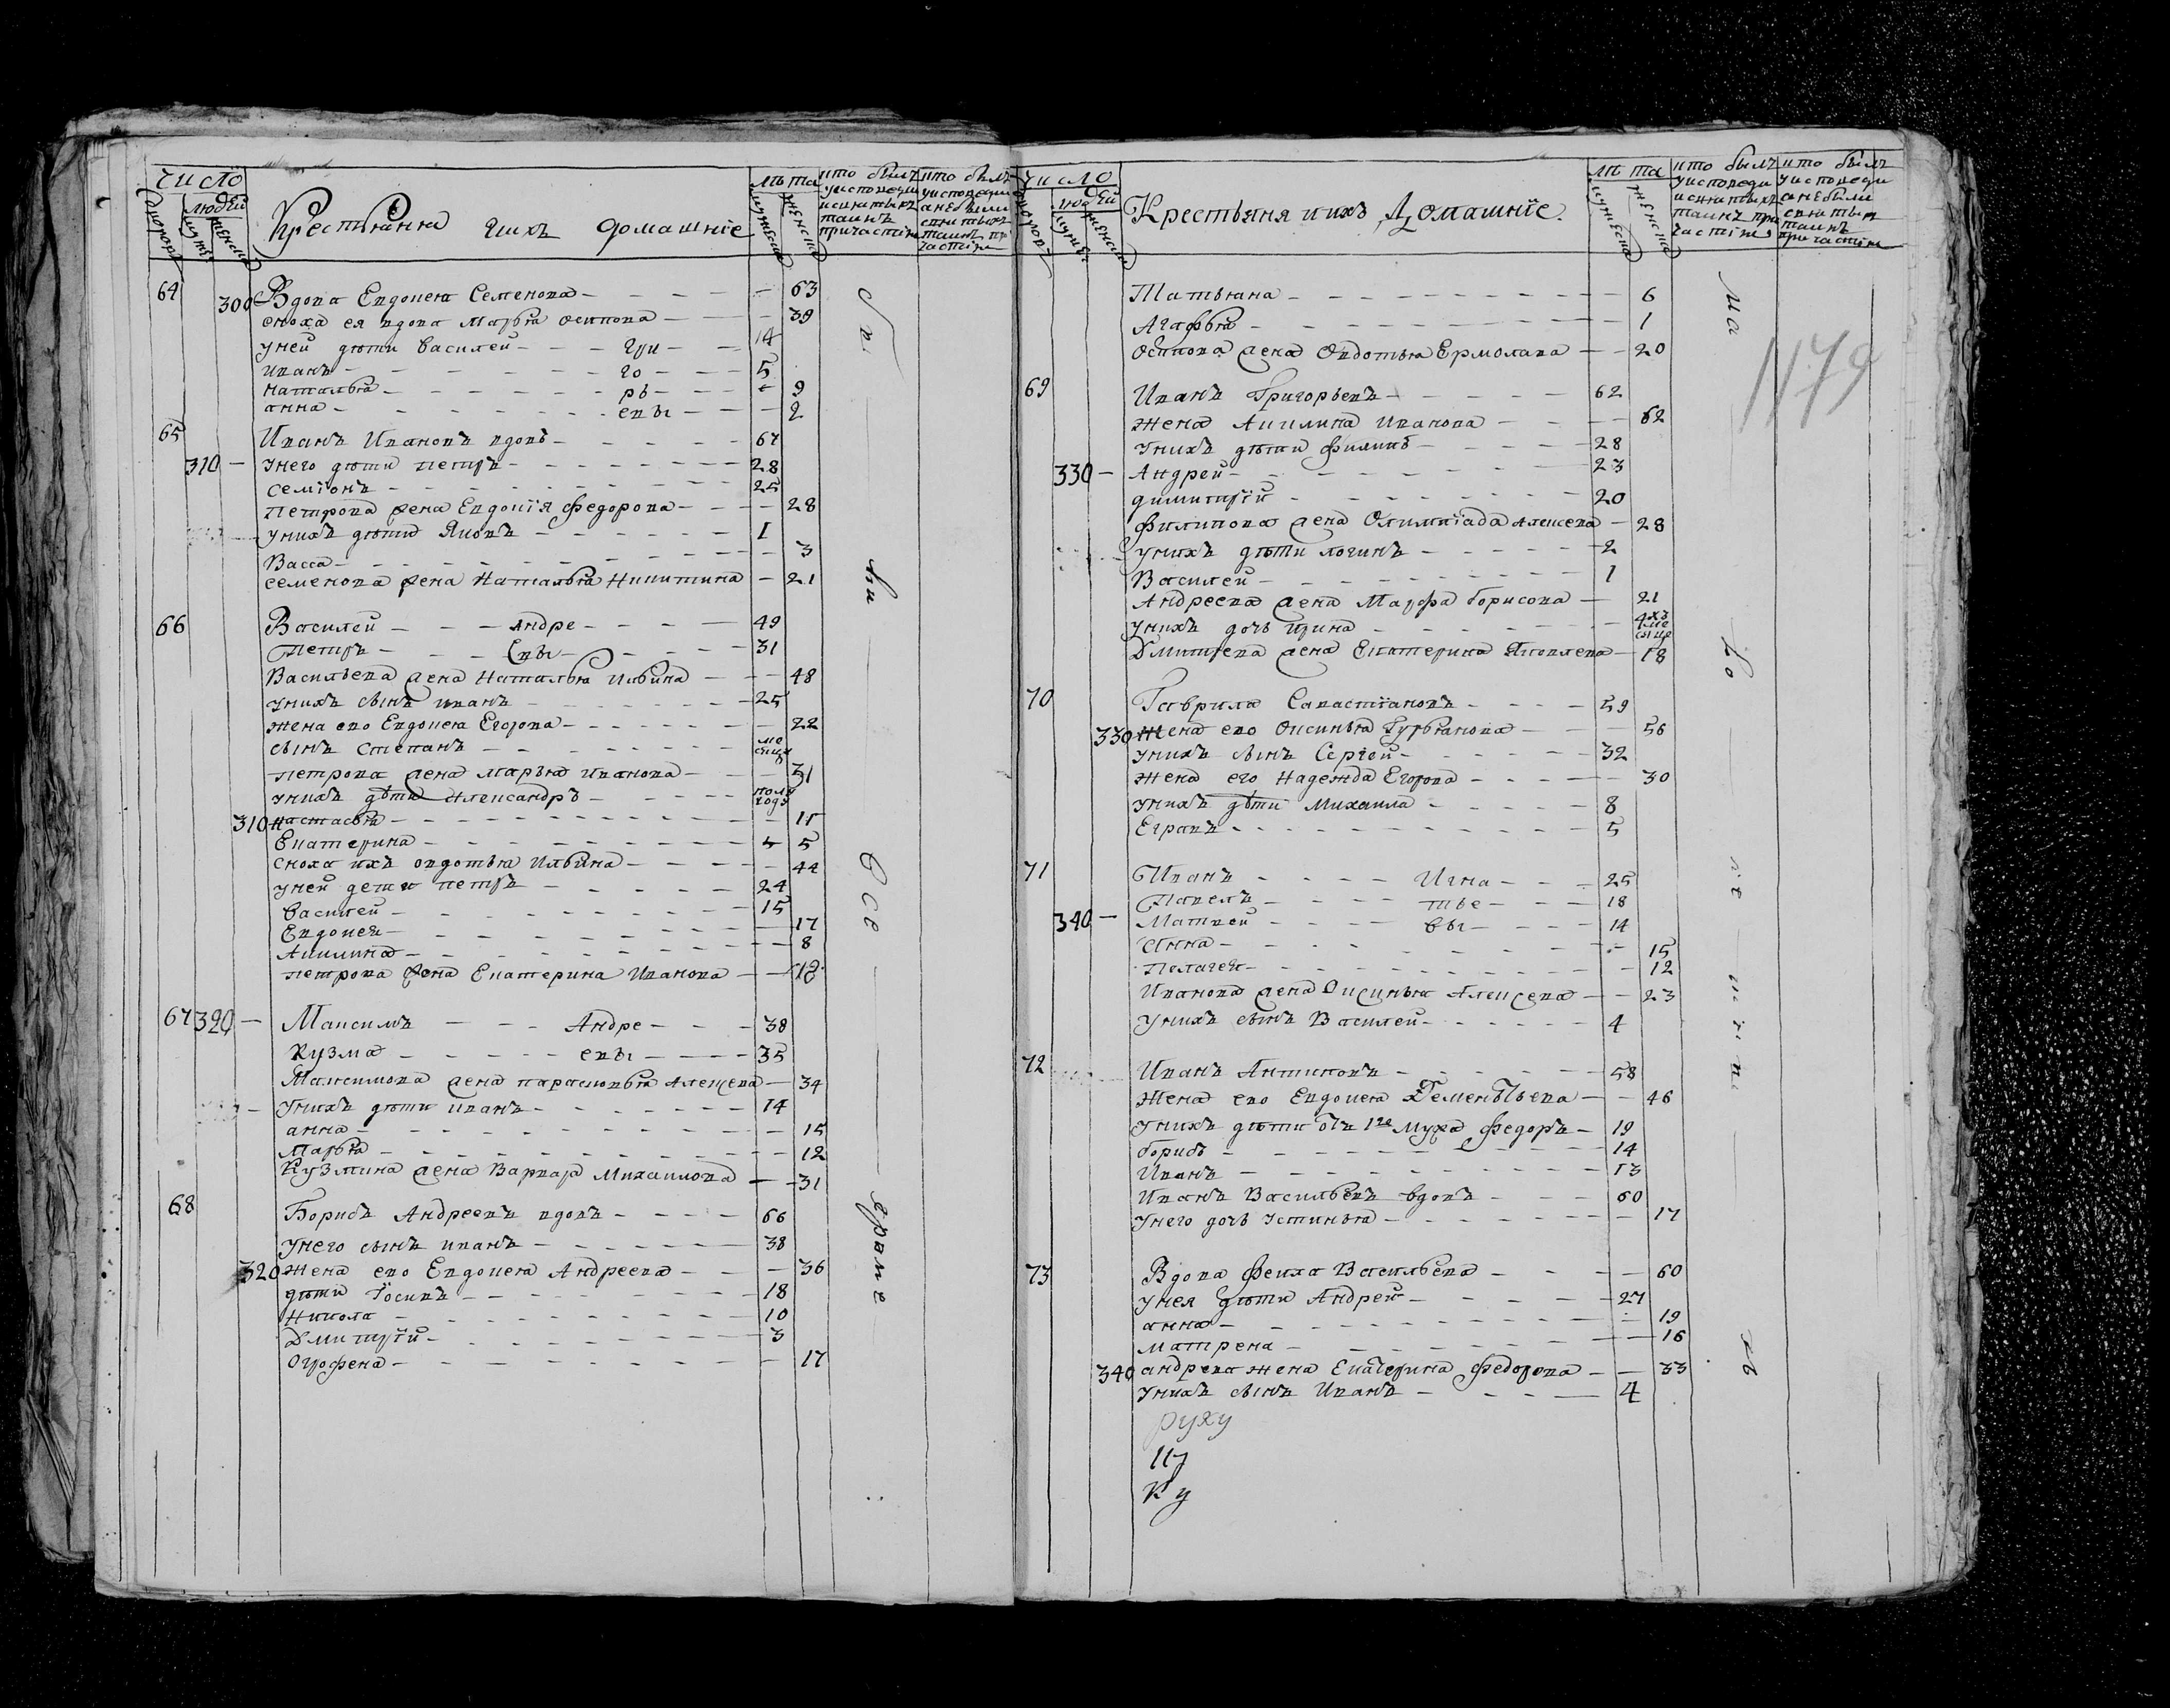 число
людей
Крестьяння ихъ домашнїе
лѣта
мужеска
женска
кто былъ у исповеди и святыхъ таинъ причастїя
кто былъ у исповеди а небыли святыхъ таинъ причастїя
64 300 Вдова Евдокея Семенова 63
сноха ея вдова Марья осипова 39
унеи дѣти Василеи гри 14
иванъ го 5
наталья рь 9
анна евы 2
65 Иванъ Ивановъ вдовъ 67
310 унего дѣти петръ 28
семїонъ 25
петрова жена Евдокїя Федорова 28
унихъ дѣти Яковъ 1
Васса 3
семенова жена Наталья Никитина 21
66 Василеи Андре 49
Петръ евы 31
Васильева жена Наталья Ильина 48
унихъ сынъ иванъ 25
жена ево Евдокея Егорова 22
сынъ Степанъ месяцъ
петрова жена марья иванова 31
унихъ дѣти Александръ полъ года
310 настасья 11
Екатерина 5
сноха ихъ овдотья Ильина 44
унеи дети петръ 24
василеи 15
Евдокея 17
Акилина 8
петрова жена Екатерина Иванова 18
67 320 Максимъ Андре 38
Кузма евы 35
Максимова жена парасковья Алексева 34
Унихъ дѣти иванъ 14
анна 15
Марья 12
Кузмина жена Варвара Михаилова 31
68 Борисъ Андреевъ вдовъ 66
унего сынъ иванъ 38
320 жена ево Евдокея Андреева 36
дѣти Їосивъ 18
Никола 10
Дмитрїй 3
Огрофена 17
Сїи
всѣ
число
людей
Крестьяня и ихъ Домашнїе
лѣта
мужеска
женска
кто былъ у исповеди и святыхъ таинъ причастїя
кто былъ у исповеди а небыли святыхъ таинъ причастїя
1179
Татьяна 6
Агафья 1
Осипова жена Овдотья Ермолава 20
69 Иванъ Григорьевъ 62
жена Акилина Иванова 62
Унихъ дѣти Филипъ 28
330 Андрей 23
димитрїй 20
Филипова жена Олимпїада Алексева 28
унихъ дѣти логинъ 2
Василеи 1
Андреева жена Марфа борисова 21
унихъ дочь Ирина 4хъ месяце
Дмитрева жена Екатерина Яковлева 18
70 Гаврила Савастїановъ 59
330 жена ево Оксинья Гурьянова 56
унихъ сынъ Сергей 32
жена его Надежда Егорова 30
унихъ дѣти Михаила 8
Егравъ 5
71 Иванъ Игна 25
Павелъ тье 18
340 Матвеи вы 14
Анна 15
Пелагея 12
Иванова жена Оксинья Алексева 23
Унихъ сынъ Василеи 4
72 Иванъ Антиповъ 58
жена ево Евдокея Дементьева 46
Унихъ дѣти отъ 1го мужа Федоръ 19
борисъ 14
Иванъ 13
Иванъ Васильевъ вдовъ 60
унего дочь устинья 17
73 Вдова Фекла Васильева 60
унея дѣти Андрей 27
анна 19
матрена 16
340 андрева жена Екатерина Федорова 33
Унихъ сынъ Иванъ 4